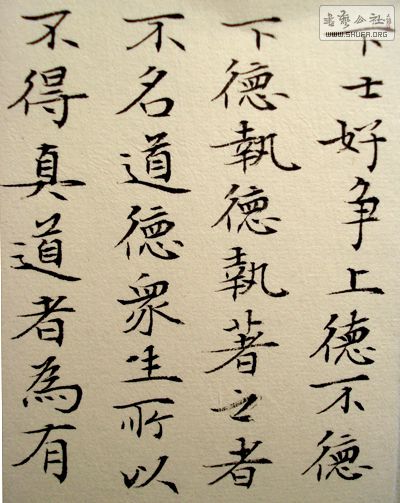 書藝公社
WWW.SHUFA.ORG
下士好争上德不德
下德執德執著之者
不名道德衆生所以
不得真道者為有